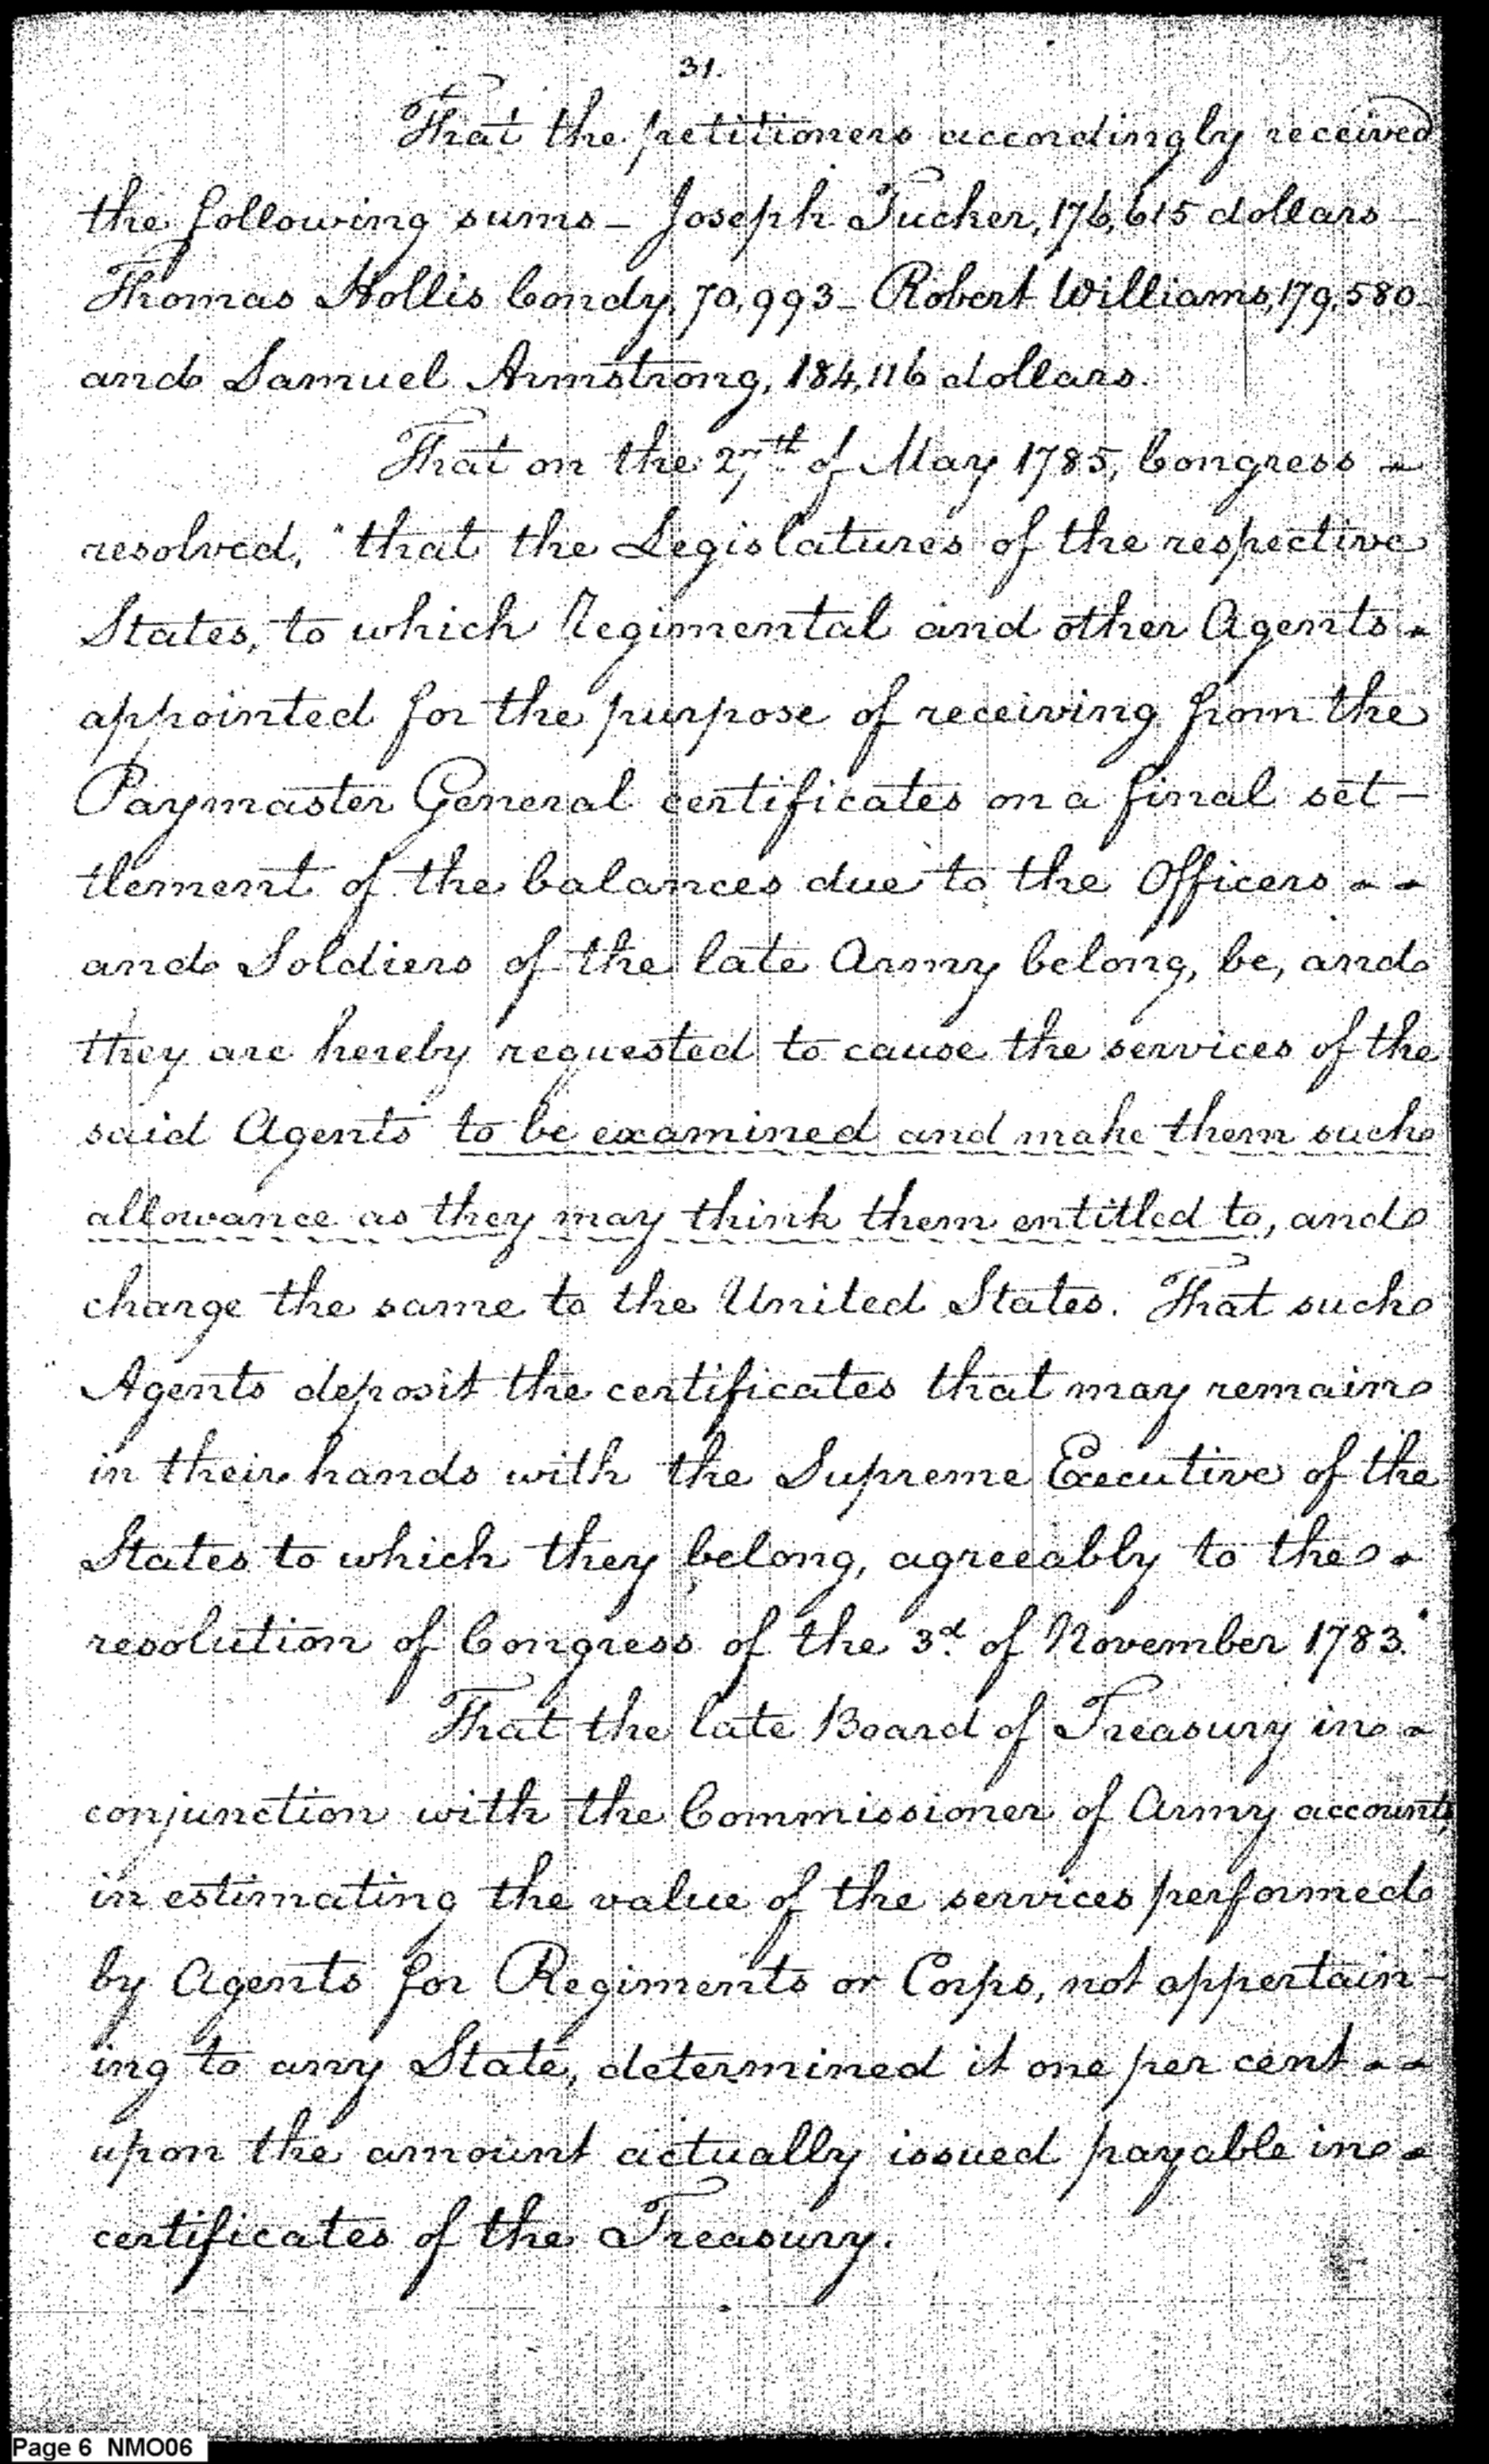 31.
That the petitioners accordingly received
the following sums – Joseph Tucker, 176,615 dollars –
Thomas Hollis Condy, 70,993 – Robert Williams, 179,580 –
and Samuel Armstrong, 184,116 dollars.
That on the 27th of May 1785, Congress
resolved, "that the Legislatures of the respective
States, to which Regimental and other Agents
appointed for the purpose of receiving from the
Paymaster General certificates on a final set-
tlement of the balances due to the Officers
and Soldiers of the late Army belong, be, and
they are hereby requested to cause the services of the
said Agents to be examined and make them such
allowance as they may think them entitled to, and
change the same to the United States. That such
Agents deposit the certificates that may remain
in their hands with the Supreme Executive of the
States to which they belong, agreeably to the
resolution of Congress of the 3d of November 1783."
That the late Board of Treasury in
conjunction with the Commissioner of Army accounts,
in estimating the value of the services performed
by Agents for Regiments or Corps, not appertain-
ing to any State, determined it one per cent
upon the amount actually issued payable in
certificates of the Treasury.
Page 6 NMO06